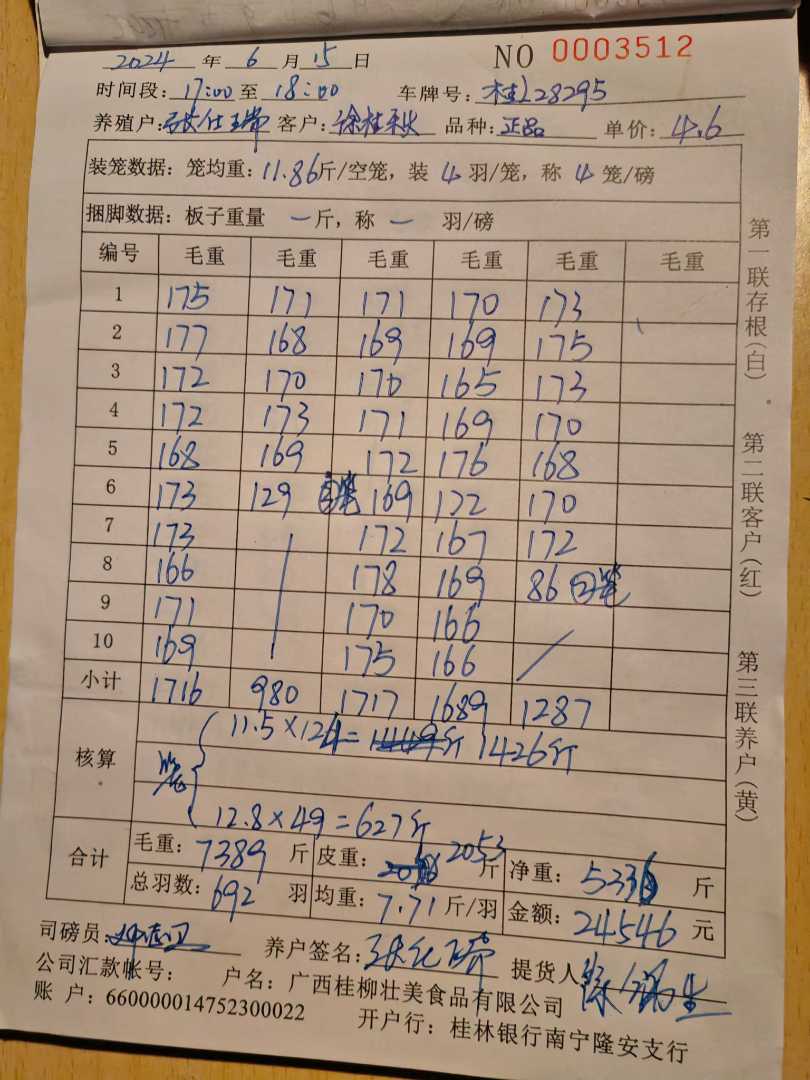 2024 年 6 月 15 日 NO 0003512
时间段: 17:00 至 18:00 车牌号: 桂L28295
养殖户: 张仕瑞 客户: 徐桂秋 品种: 正品 单价: 4.6
装笼数据: 笼均重: 11.86 斤/空笼, 装 4 羽/笼, 称 4 笼/磅
捆脚数据: 板子重量 一 斤, 称 一 羽/磅
编号 毛重 毛重 毛重 毛重 毛重 毛重
1 175 171 171 170 173
2 177 168 169 169 175
3 172 170 170 165 173
4 172 173 171 169 170
5 168 169 172 176 168
6 173 129 169 172 170
7 173 172 167 172
8 166 178 169 86 2笼
9 171 170 166
10 169 175 166
小计 1716 980 1717 1689 1287
核算 笼 11.5×124= 斤 1426斤
12.8×49=627斤
合计 毛重: 7389 斤 皮重: 2053 斤 净重: 5336 斤
总羽数: 692 羽 均重: 7.71 斤/羽 金额: 24546 元
司磅员: 养户签名: 提货人
公司汇款帐号: 户名: 广西桂柳壮美食品有限公司
账 户: 660000014752300022 开户行: 桂林银行南宁隆安支行
第一联存根(白) 第二联客户(红) 第三联养户(黄)